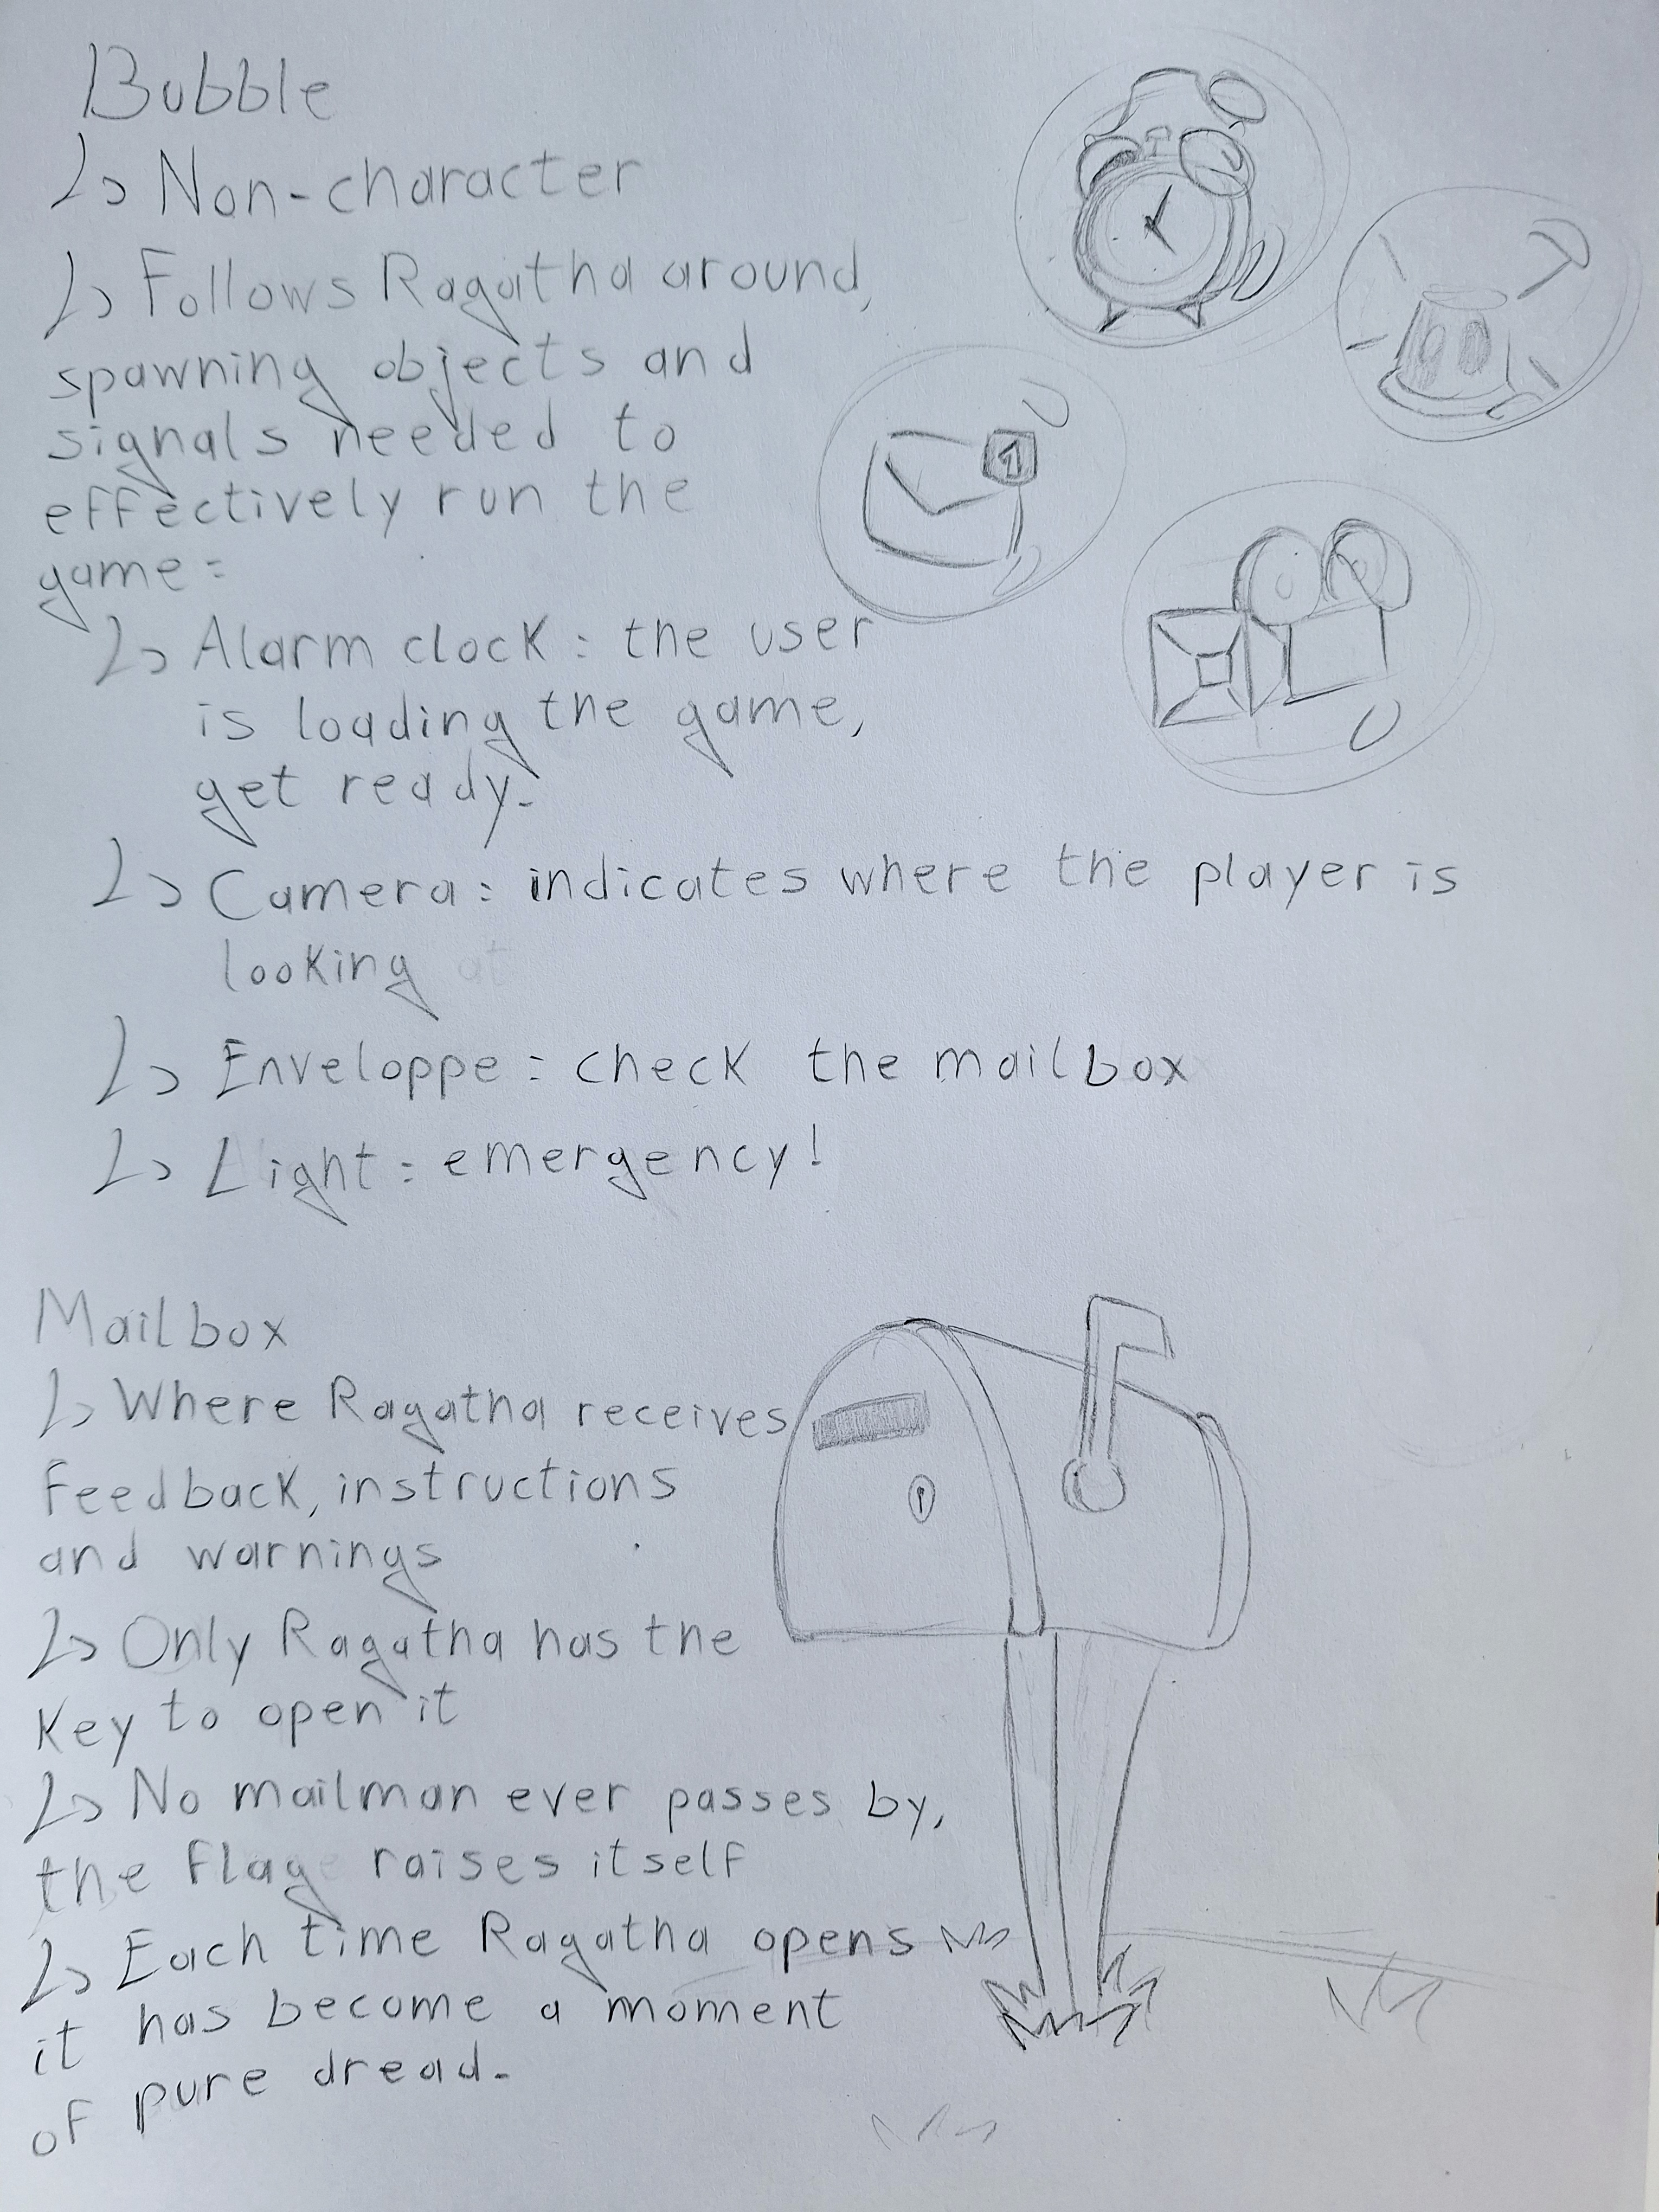 Bubble
↳ Non-character
↳ Follows Ragatha around,
spawning objects and
signals needed to
effectively run the
game:
↳ Alarm clock: the user
is loading the game,
get ready.
↳ Camera: indicates where the player is
looking at
↳ Enveloppe: check the mailbox
↳ Light: emergency!
1
Mailbox
↳ Where Ragatha receives
feedback, instructions
and warnings
↳ Only Ragatha has the
key to open it
↳ No mailman ever passes by,
the flag raises itself
↳ Each time Ragatha opens
it has become a moment
of pure dread.